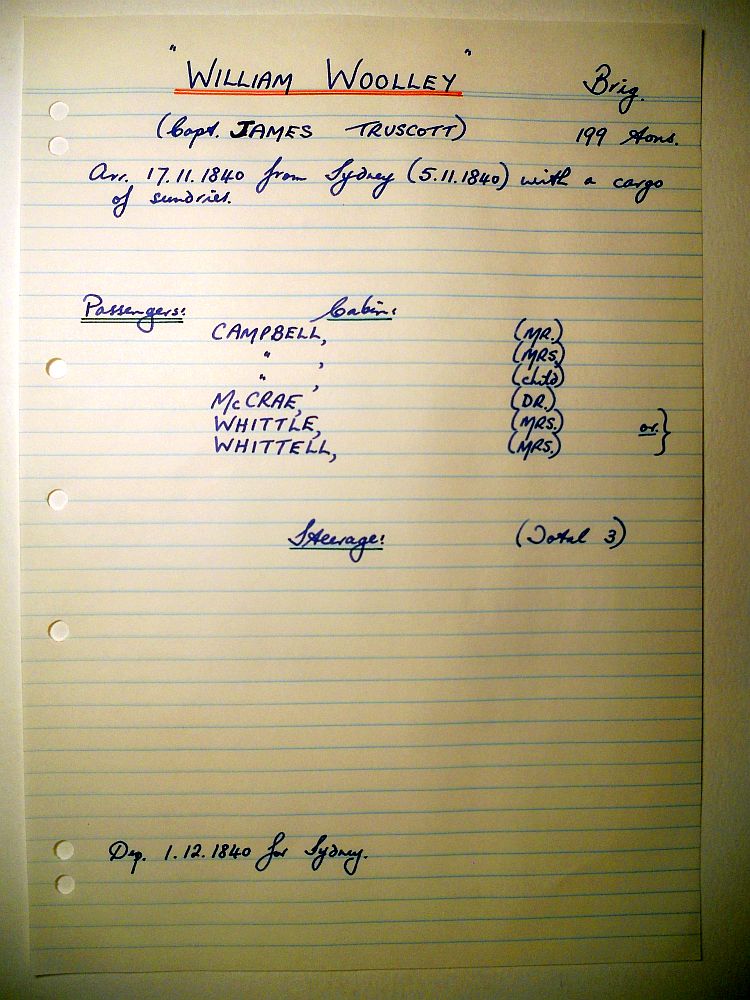 "WILLIAM WOOLLEY" Brig.
(Capt. JAMES TRUSCOTT) 199 tons.
Arr. 17.11.1840 from Sydney (5.11.1840) with a cargo
of sundries.
Passengers: Cabin:
CAMPBELL, (MR.)
" , (MRS)
" , (child)
McCRAE, (DR.)
WHITTLE, (MRS.) or }
WHITTELL, (MRS.)
Steerage: (Total 3)
Dep. 1.12.1840 for Sydney.